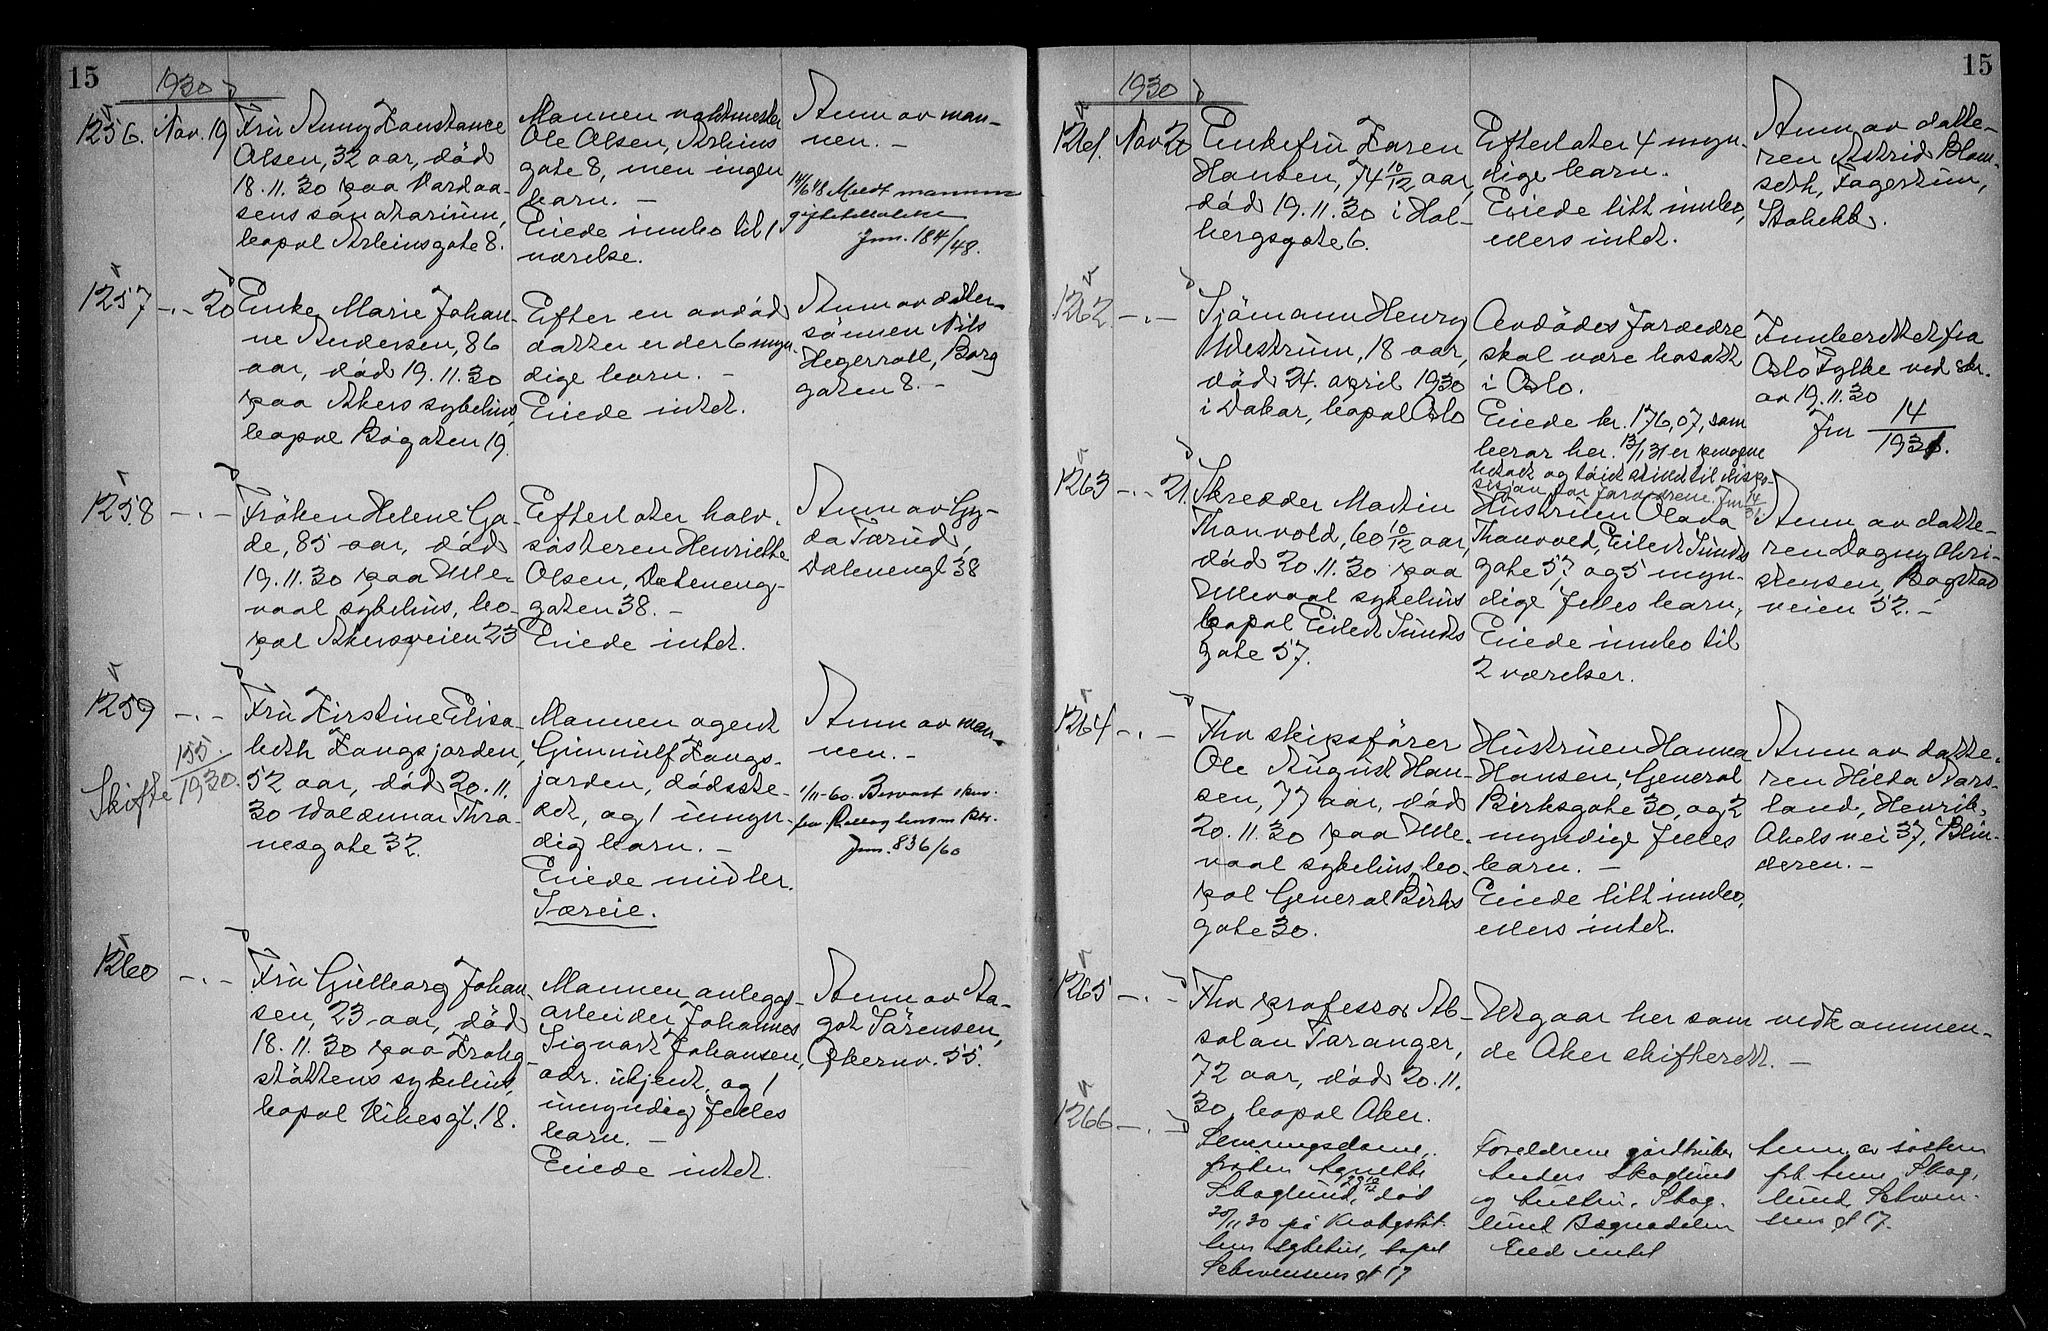 15
1930
1256. Nov. 19
Fru Anny Konstance
Olsen, 32 aar, död
18.11.30 paa Vardaa-
sens sanatorium,
bopæl Arbinsgate 8.
Mannen vaktmester
Ole Olsen, Arbins
gate 8, men ingen
barn. -
Eiede innbo til 1
værelse.
Anm av man-
nen. -
14/6 48 Meldt mannens
Jnr. 184/48.
1257 -.- 20
Enke Marie Johan-
ne Andersen, 86
aar, död 19.11.30
paa Akers sykehus,
bopæl Bögaten 19.
Efter en avdöd
datter er der 6 myn-
dige barn. -
Eiede intet.
Anm av datter-
sönnen Nils
Hegervoll, Borg
gaten 8. -
1258 -.-
Fröken Helene Ga-
de, 85 aar, död
19.11.30 paa Ulle-
vaal sykehus, bo-
pæl Akersveien 23
Efterlater halv-
sösteren Henriette
Olsen, Dæleneng-
gaten 38. -
Eiede intet.
Anm av Gy-
da Tærud,
Dælenengt 38
1259 -.-
Skifte 155/1930.
Fru Kirstine Elisa-
beth Kongsjorden,
52 aar, död 20.11.
30 Waldemar Thra-
nesgate 32.
Mannen agent
Gunnulf Kongs-
jorden, dödsste-
det, og 1 umyn-
dig barn. -
Eiede midler.
Særeie.
Anm av man-
nen. -
1/11-60. Besvart
Jnr. 836/60
1260 -.-
Fru Gulborg Johan-
sen, 23 aar, död
18.11.30 paa Krohg-
støttens sykehus,
bopæl Vibesgt. 18.
Mannen anleggs-
arbeider Johannes
Sigvart Johansen,
adr. ukjent, og 1
umyndig felles
barn. -
Eiede intet.
Anm av Aa-
got Sörensen,
Økernv. 55.
15
1930
1261. Nov 20
Enkefru Karen
Hansen, 74 10/12 aar,
död 19.11.30 i Hol-
bergsgate 6.
Efterlater 4 myn-
dige barn.
Eiede litt innbo,
ellers intet.
Anm av datte-
ren Astrid Blom-
seth, Fagertun,
Stabekk.
1262. -.-
Sjömann Henry
Westrum, 18 aar,
död 24. april 1930
i Dakar, bopæl Oslo
Avdödes foreldre
skal være bosatt
i Oslo.
Eiede kr. 176,07, som
beror her. 13/1 31 er pengene
Innberettet fra
Oslo Fylke ved skr.
av 19.11.30
Jnr 14/1931.
1263 -.- 21.
Skredder Martin
Thorvold, 60 10/12 aar,
död 20.11.30 paa
Ullevaal sykehus
bopæl Eilert Sunds
gate 57.
Hustruen Olava
Thorvold, Eilert Sunds
gate 57, og 5 myn-
dige felles barn,
Eiede innbo til
2 værelser.
Anm av datte-
ren Dagny Chri-
stensen, Bogstad
veien 52. -
1264 -.-
Fhv skipsfører
Ole August Han-
sen, 77 aar, död
20.11.30 paa Ulle-
vaal sykehus, bo-
pæl General Birks
gate 30.
Hustruen Hanna
Hansen, General
Birksgate 30, og 2
myndige felles
barn. -
Eiede litt innbo,
ellers intet.
Anm av datte-
ren Hilda Nors-
land, Henrik
Abels vei 37, Blin-
deren. -
1265 -.-
Fhv professor Ab-
salon Taranger,
72 aar, död 20.11.
30, bopæl Aker.
Utgaar her som vedkommen-
de Aker skifterett. -
1266 -.-
fröken Agnethe
Skoglund, 29 10/12, död
20/11 30 på Krohgstöt-
tens sykehus, bopæl
Schwensens gt 17
Foreldrene gårdbruker
Anders Skoglund
og hustru, Skog-
lund Begnadalen
Eied intet
Anm. av søsteren
frk. Anne Skog-
lund, Schwen-
sens gt 17.